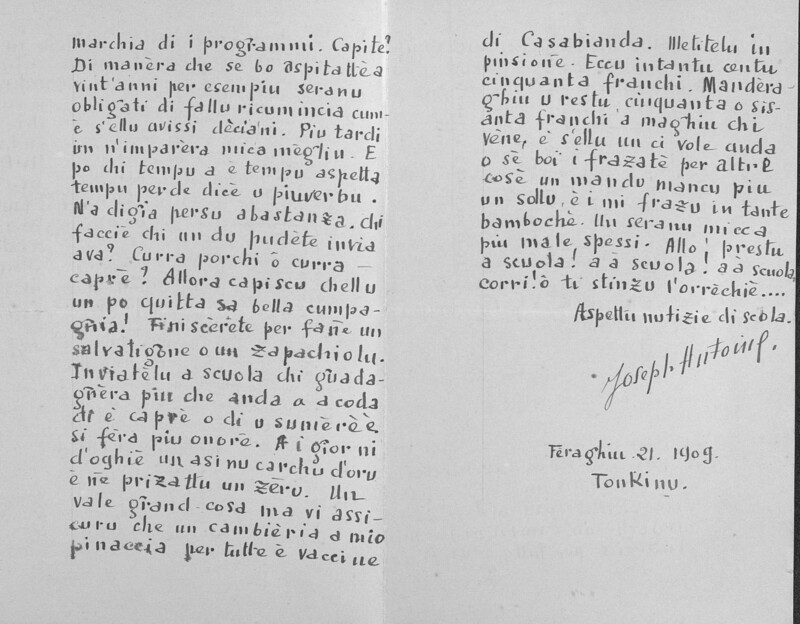 marchia di i programmi. Capite?
Di manèra che se bo aspitattèa
vint'anni per esempiu seranu
obligati di fallu ricumincia cum-
è s'ellu avissi dèciani. Piu tardi
un n'imparèra mica mègliu. E
po chi tempu a è tempu aspetta
tempu perde dicè u piuverbu.
N'a digià persu abastanza. Chi
faccie chi un du pudète invia
ava? Curra porchi ô curra-
caprè? Allora capiscu chellu
un po quitta sa bella cumpa-
gnia! Finiscèrete per fanne un
salvatigone o un zapachiolu.
Inviatèlu a scuola chi guada-
gnèra piu che anda a a coda
di è caprè o di u sumèrèe
si fèra piu onore. A i giorni
d'oghiè un asinu carchu d'oru
è ne prizattu un zèru. Un
vale grand cosa ma vi assi-
curu che un cambièria a mio
pinaccia per tutte è vaccine
di Casabianda. Metitelu in
pinsione. Eccu intantu centu
cinquanta franchi. Mandèra-
ghiu u restu cinquanta o sis-
anta franchi a maghiu chi
vène, è s'ellu un ci vole anda
o sè boi i frazatè per altre
cosè un mandu mancu piu
un sollu, è i mi frazu in tante
bambochè. Un seranu micca
piu male spessi. Allo! prestu
a scuola! a à scuola! a à scuola
corri! ò ti stinzu l'orrèchiè....
Aspettu nutizie di scola.
Joseph Antoine.
Fèraghiu 21. 1909.
Tonkinu.